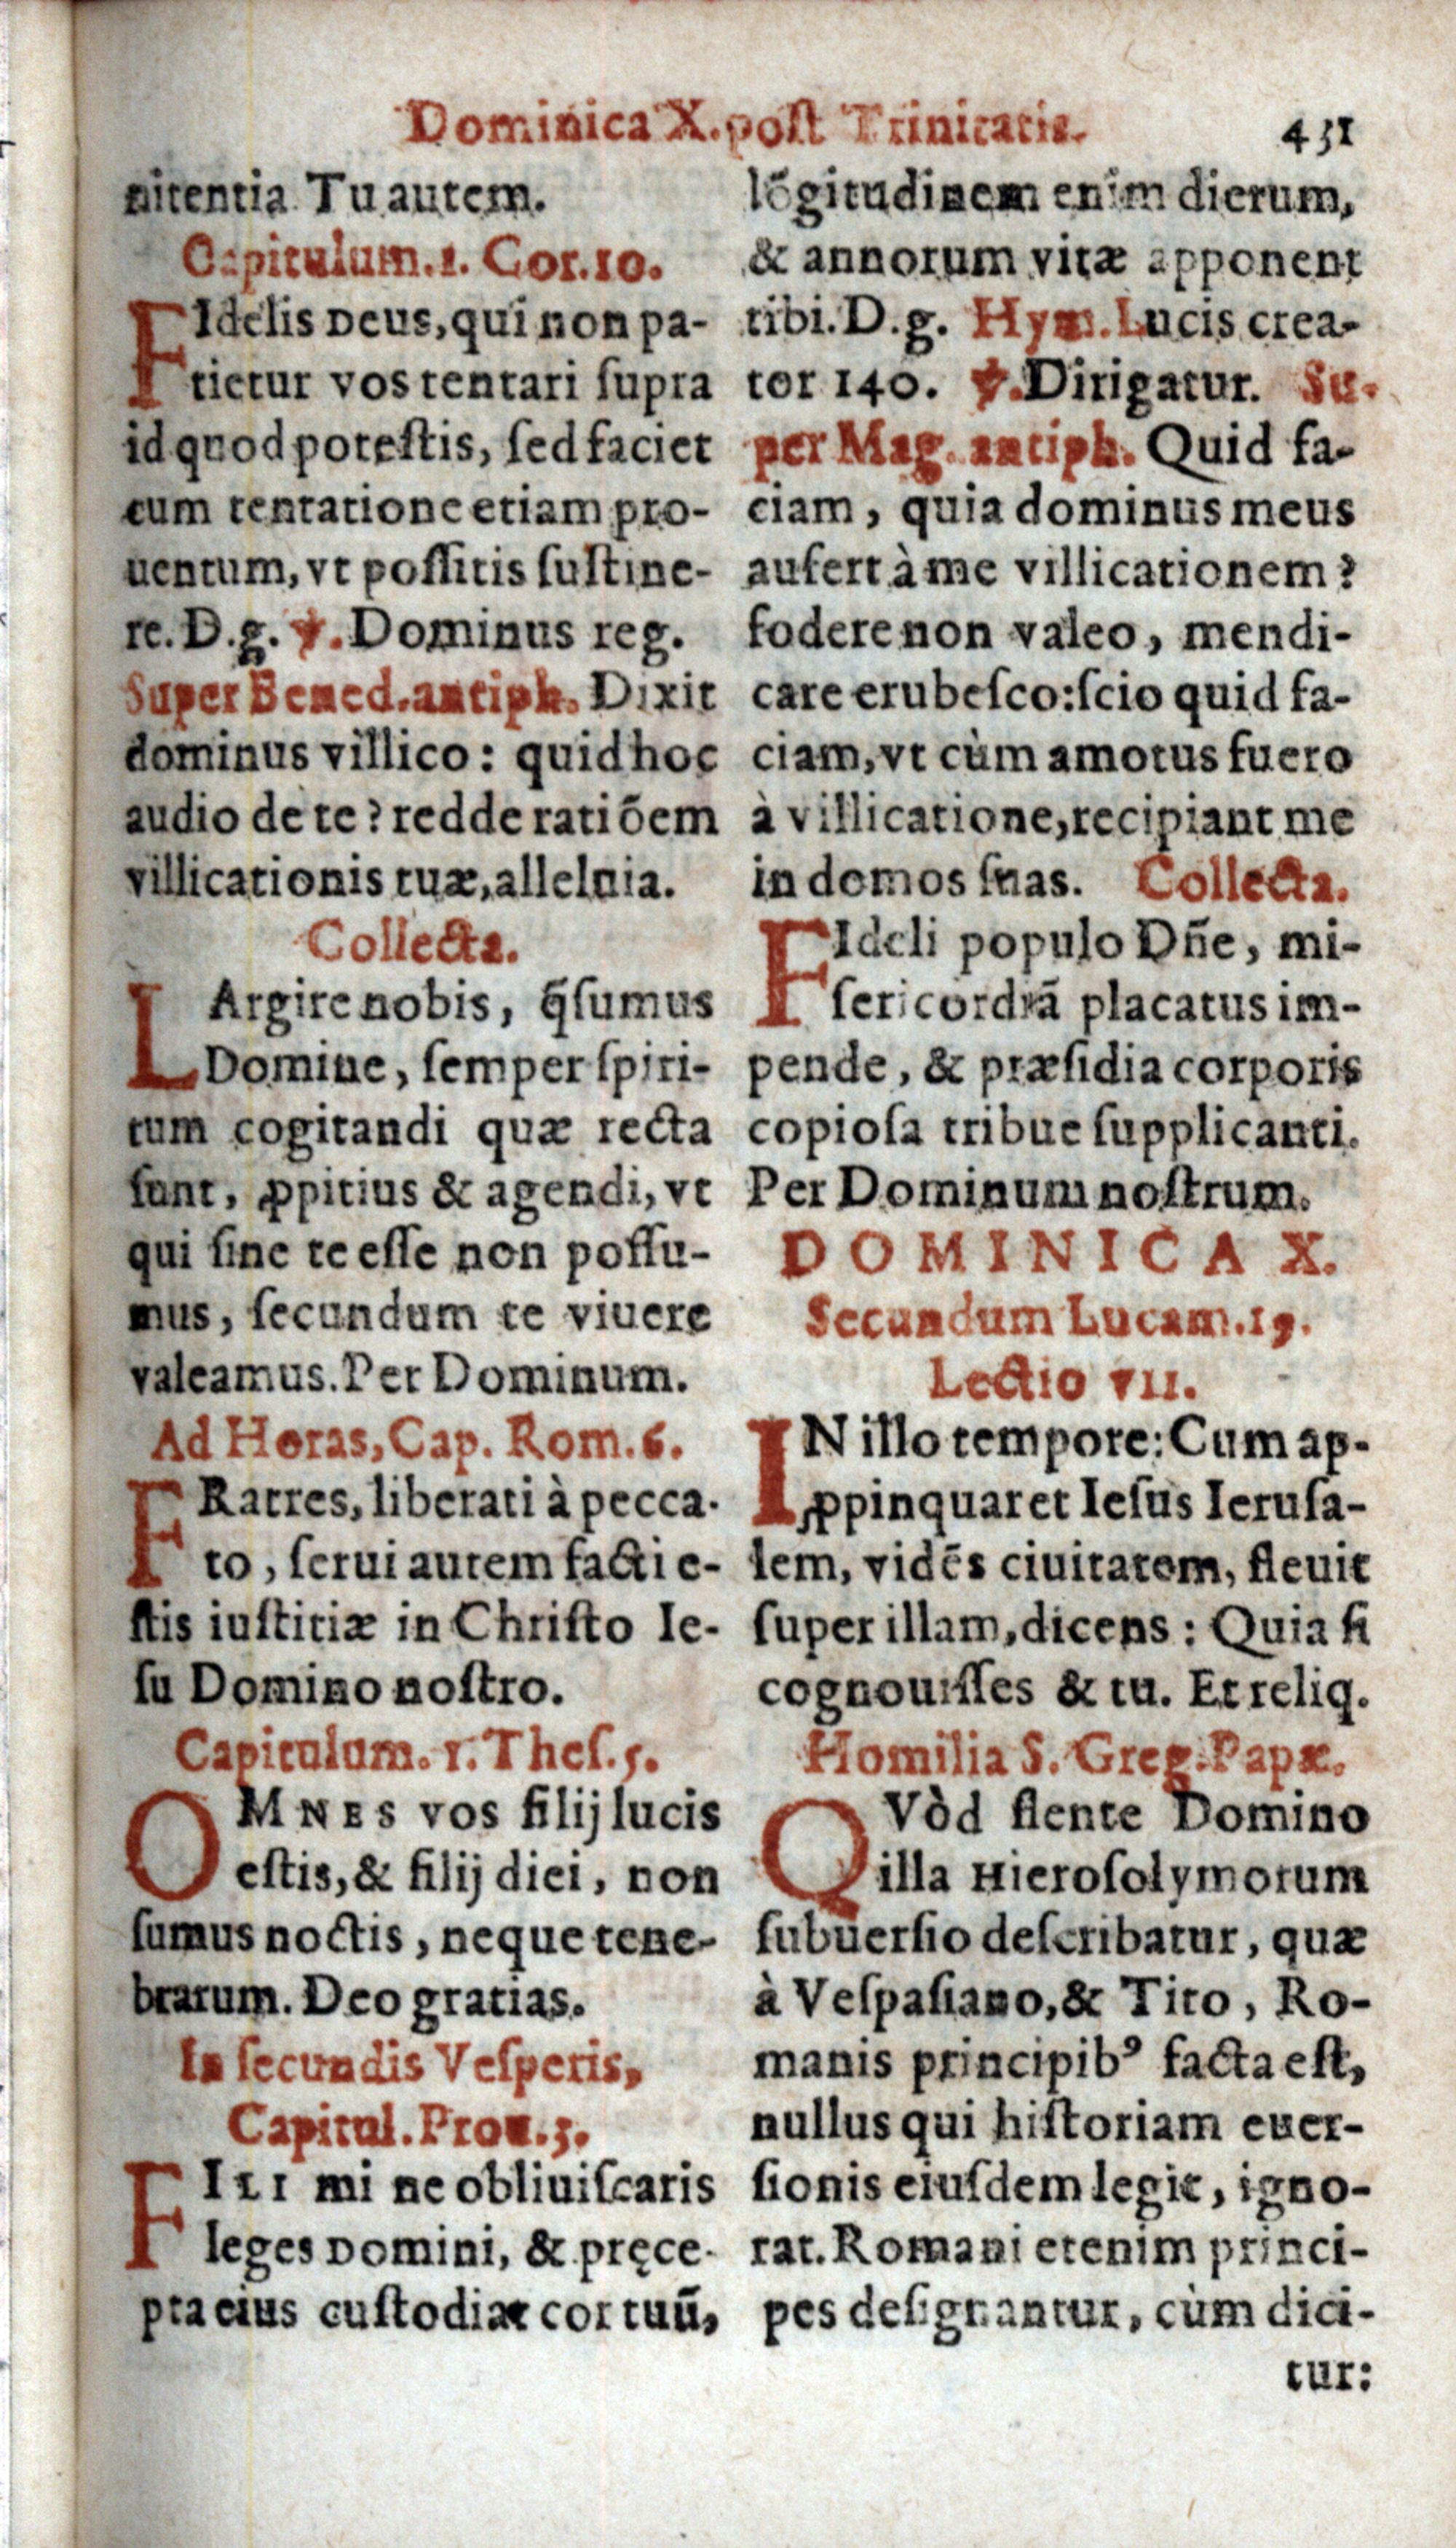 Dominica X. post Trinitatis. 431
nitentia. Tu autem.
Capitulum. 1. Cor. 10.
FIdelis Deus, qui non pa-
tietur vos tentari ſupra
id quod poteſtis, ſed faciet
cum tentatione etiam pro-
uentum, vt poſſitis ſuſtine-
re. D.g. ℣. Dominus reg.
Super Bened. antiph. Dixit
dominus villico: quid hoc
audio de te? redde ratiõem
villicationis tuæ, alleluia.
Collecta.
LArgire nobis, q̃ſumus
Domine, ſemper ſpiri-
tum cogitandi quæ recta
ſunt, ꝓpitius & agendi, vt
qui ſine te eſſe non poſſu-
mus, ſecundum te viuere
valeamus. Per Dominum.
Ad Horas, Cap. Rom. 6.
FRatres, liberati à pecca-
to, ſerui autem facti e-
ſtis iuſtitiæ in Chriſto Ie-
ſu Domino noſtro.
Capitulum. 1. Theſ. 5.
OMNES vos filij lucis
eſtis, & filij diei, non
ſumus noctis, neque tene-
brarum. Deo gratias.
In ſecundis Veſperis,
Capitul. Prou. 3.
FILI mi ne obliuiſcaris
leges Domini, & pręce-
pta eius cuſtodiat cor tuũ,
lõgitudinem enim dierum,
& annorum vitæ apponent
tibi. D.g. Hym. Lucis crea-
tor 140. ℣. Dirigatur. Su-
per Mag. antiph. Quid fa-
ciam, quia dominus meus
aufert à me villicationem?
fodere non valeo, mendi-
care erubeſco: ſcio quid fa-
ciam, vt cùm amotus fuero
à villicatione, recipiant me
in domos ſuas. Collecta.
FIdeli populo Dñe, mi-
ſericordiã placatus im-
pende, & præſidia corporis
copioſa tribue ſupplicanti.
Per Dominum noſtrum.
DOMINICA X.
Secundum Lucam. 19.
Lectio VII.
IN illo tempore: Cum ap-
ꝓpinquaret Ieſus Ieruſa-
lem, vidẽs ciuitatem, fleuit
ſuper illam, dicens: Quia ſi
cognouiſſes & tu. Et reliq.
Homilia S. Greg. Papæ.
QVòd flente Domino
illa Hieroſolymorum
ſubuerſio deſcribatur, quæ
à Veſpaſiano, & Tito, Ro-
manis principibꝰ facta eſt,
nullus qui hiſtoriam euer-
ſionis eiuſdem legit, igno-
rat. Romani etenim princi-
pes deſignantur, cùm dici-
tur: